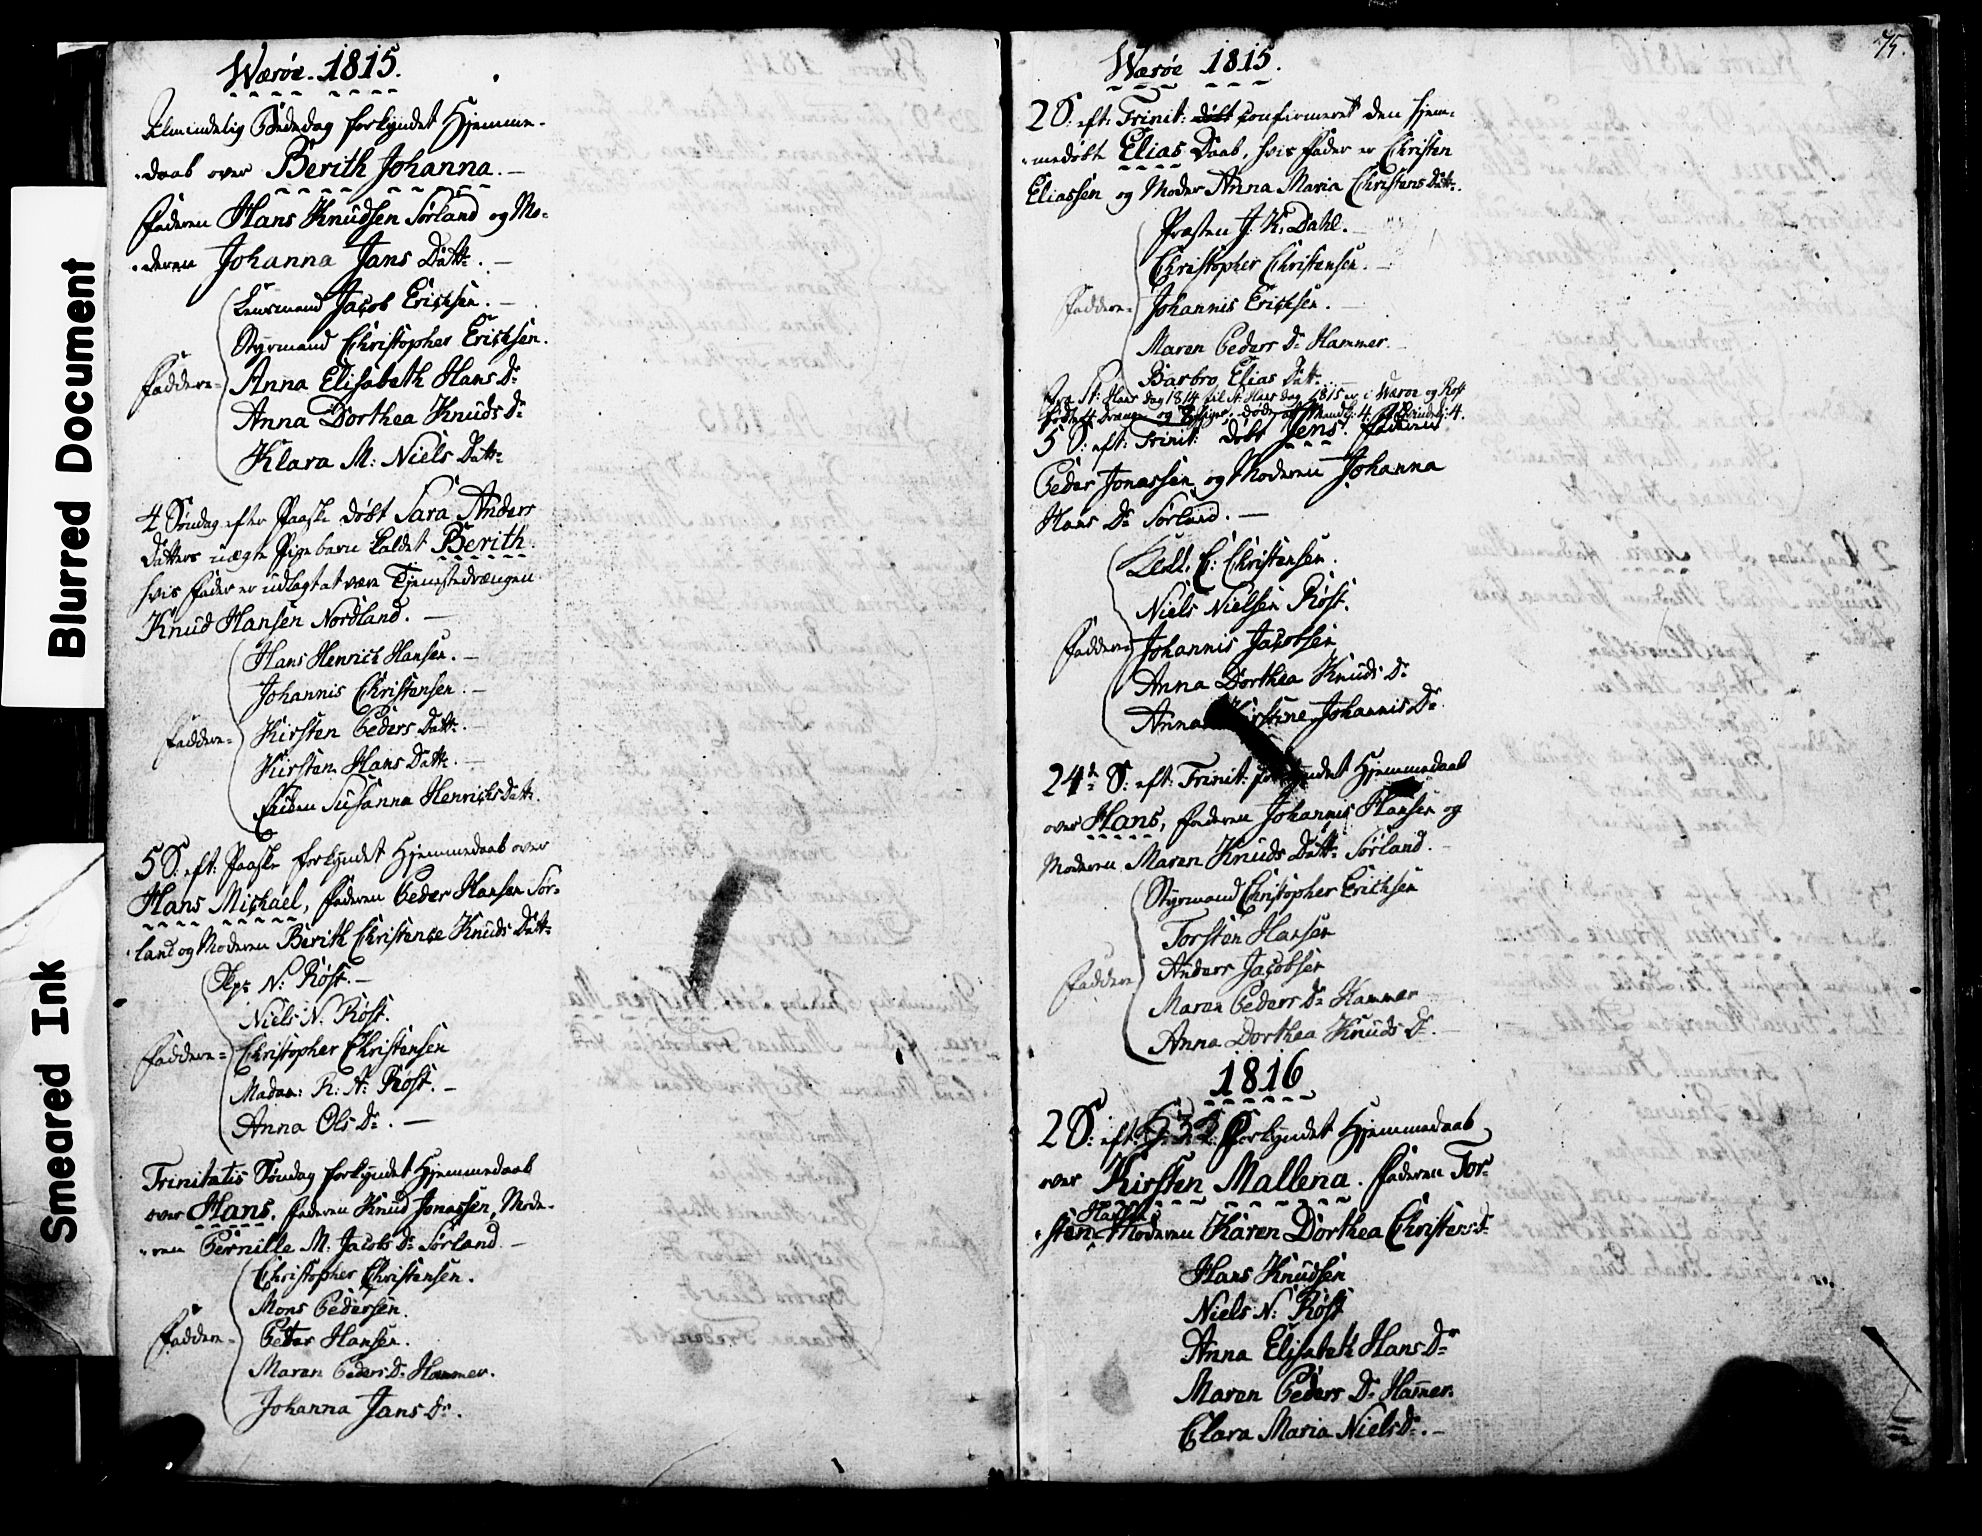 Blurred Document
Smeared Ink
Wærøe 1815.
Almindelig Bededag forkyndet Hjemme-
daab over Berith Johanna. —
Faderen Hans Knudsen Sørland og Mo-
deren Johanna Jans Datt:. —
Lensmand Jacob Erichsen. —
Styrmand Christopher Erichsen.
Faddere= Anna Elisabeth Hans Dr
Anna Dorthea Knuds Dr
Klara M: Niels Datt:
4 Søndag efter Paaske døbt Sara Anders
Datters uægte Pigebarn kaldet Berith.
hvis Fader er udlagt at være Tjenestedrængen
Knud Hansen Nordland. —
Hans Henrich Hansen. —
Johannis Christensen. —
Faddere= Kirsten Peders Datt:. —
Kirsten Hans Datt:. —
Susanna Henrichs Datt:.
5 S: eft: Paaske forkyndet Hjemmedaab over
Hans Michael, Faderen Peder Hansen Sør-
land og Moderen Berith Christense Knuds Datt:
N: Røst. —
Niels N. Røst.
Faddere= Christopher Christensen
Madam: R: A: Røst. —
Anna Ols Dr. —
Trinitatis Søndag forkyndet Hjemmedaab
over Hans. Faderen Knud Jonassen, Mode-
ren Pernille M. Jacobs Dr Sørland. —
Christopher Christensen.
Mons Pedersen.
Faddere= Petter Hansen.
Maren Peders Dr Hammer.
Johanna Jans Dr.
75.
Wærøe 1815.
2 S: eft: Trinit: døbt confirmeret den hjem-
medøbte Elias Daab, hvis Fader er Christen
Eliassen og Moder Anna Maria Christens Datt:.
Præsten J. K. Dahl. —
Christopher Christensen. —
Faddere= Johannis Erichsen. —
Maren Peders Dr Hammer. —
Barbro Elias Datt:
Fra St: Hans dag 1814 til St: Hans dag 1815 er i Værøe og Røst
fødte 4 Drenge og Piger, døde af Mandk: 4. Qvindek: 4.
5 S: eft: Trinit: døbt Jens. Faderen
Peder Jonassen og Moderen Johanna
Hans Dr Sørland. —
C: Christensen.
Niels Nielsen Røst.
Faddere= Johannis Jacobsen
Anna Dorthea Knuds Dr
Anna Kirstine Johannis Dr
24de S: eft: Trinit: forkyndet Hjemmedaab
over Hans, Faderen Johannis Hansen og
Moderen Maren Knuds Datt: Sørland. —
Styrmand Christopher Erichsen
Torsten Hansen
Faddere Anders Jacobsen
Maren Peders Dr Hammer
Anna Dorthea Knuds Dr. —
1816
2 S: eft: H: 3 K: forkyndet Hjemmedaab
over Kirsten Mallena. Faderen Tor-
Hansen
sten Moderen Karen Dorthea Christens Dr
Hans Knudsen
Niels N: Røst
Anna Elisabeth Hans Dr
Maren Peders Dr Hamer.
Clara Maria Niels Dr. —